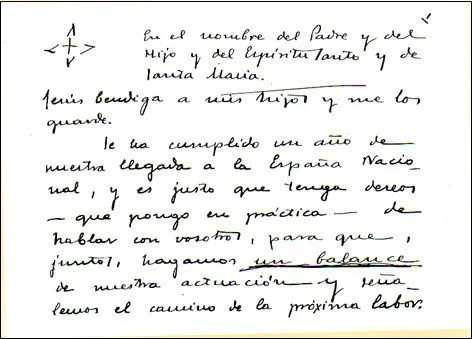 En el nombre del Padre y del
Hijo y del Espíritu Santo y de
Santa María.
Jesús bendiga a mis hijos y me los
guarde.
Se ha cumplido un año de
nuestra llegada a la España Nacio-
nal, y es justo que tenga deseos
— que pongo en práctica — de
hablar con vosotros, para que,
juntos, hagamos un balance
de nuestra actuación y seña-
lemos el camino de la próxima labor.